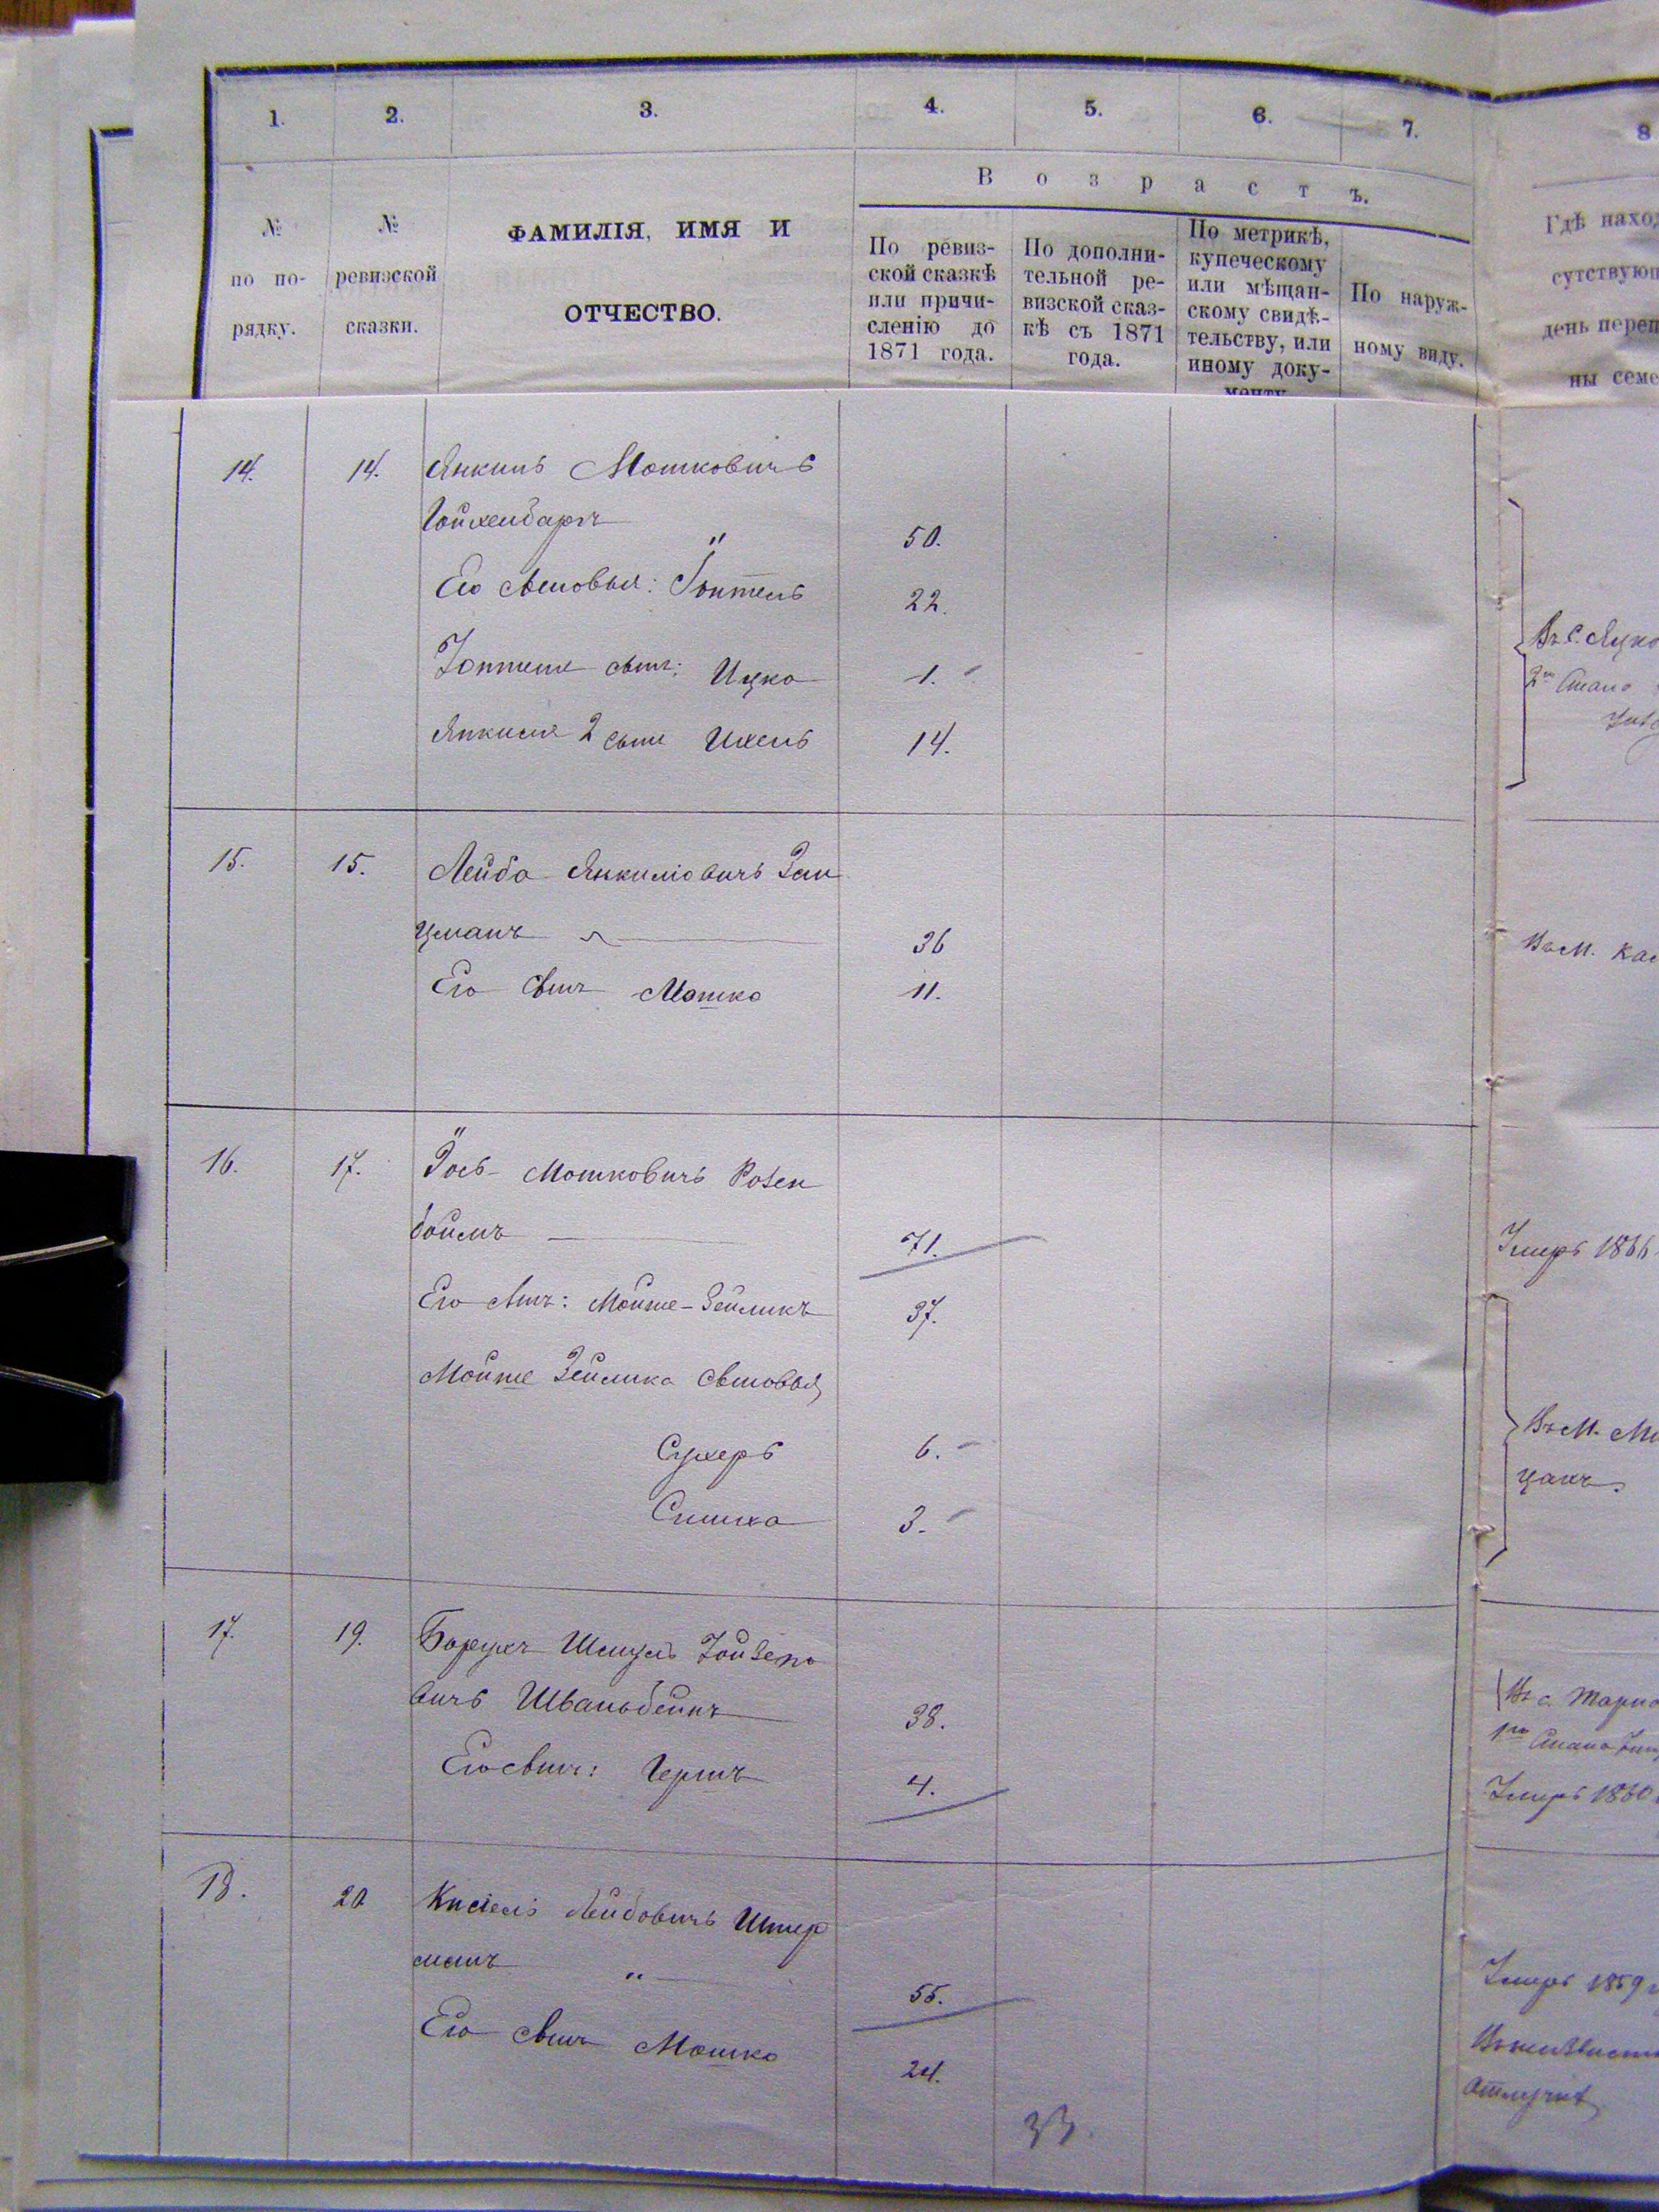 1. 2. 3. 4. 5. 6. 7. 8
Возрастъ.
№ по по-рядку.
№ ревизской сказки.
ФАМИЛІЯ, ИМЯ И
ОТЧЕСТВО.
По ревиз-
ской сказкѣ
или причи-
сленію до
1871 года.
По дополни-
тельной ре-
визской сказ-
кѣ съ 1871
года.
По метрикѣ,
купеческому
или мѣщан-
скому свидѣ-
тельству, или
иному доку-
менту
По наруж-
ному виду.
Гдѣ наход
сутствующ
день переп
ны семе
14. 14. Янкиль Мошковичъ
Гойхенбаргъ 50.
Его сыновья: 22.
сынъ: Ицко 1.
Янкиля 2 сынъ Ихель 14.
Въ с. Яцко
2го Стана
15. 15. Лейба Янкиліовичъ Зал
цманъ 36
Его сынъ Мошко 11.
Въ М. Кас
16. 17. Мошковичъ Розен
боймъ 71.
Умеръ 1866
Его сынъ: Мойше-Зейликъ 37.
Мойше Зейлика сыновья
Сухеръ 6.
Симха 3.
Въ М.
17. 19. Борухъ Шмуль Іойзепо
вичъ Шваньбейнъ 38.
Въ с. Тарно
1го Стана
Его сынъ: Гершъ 4.
Умеръ 1860
18. 20 Кисіель Лейбовичъ Штер
манъ " 55.
Умеръ 1859
Его сынъ Мошко 24.
отлучкѣ
33.